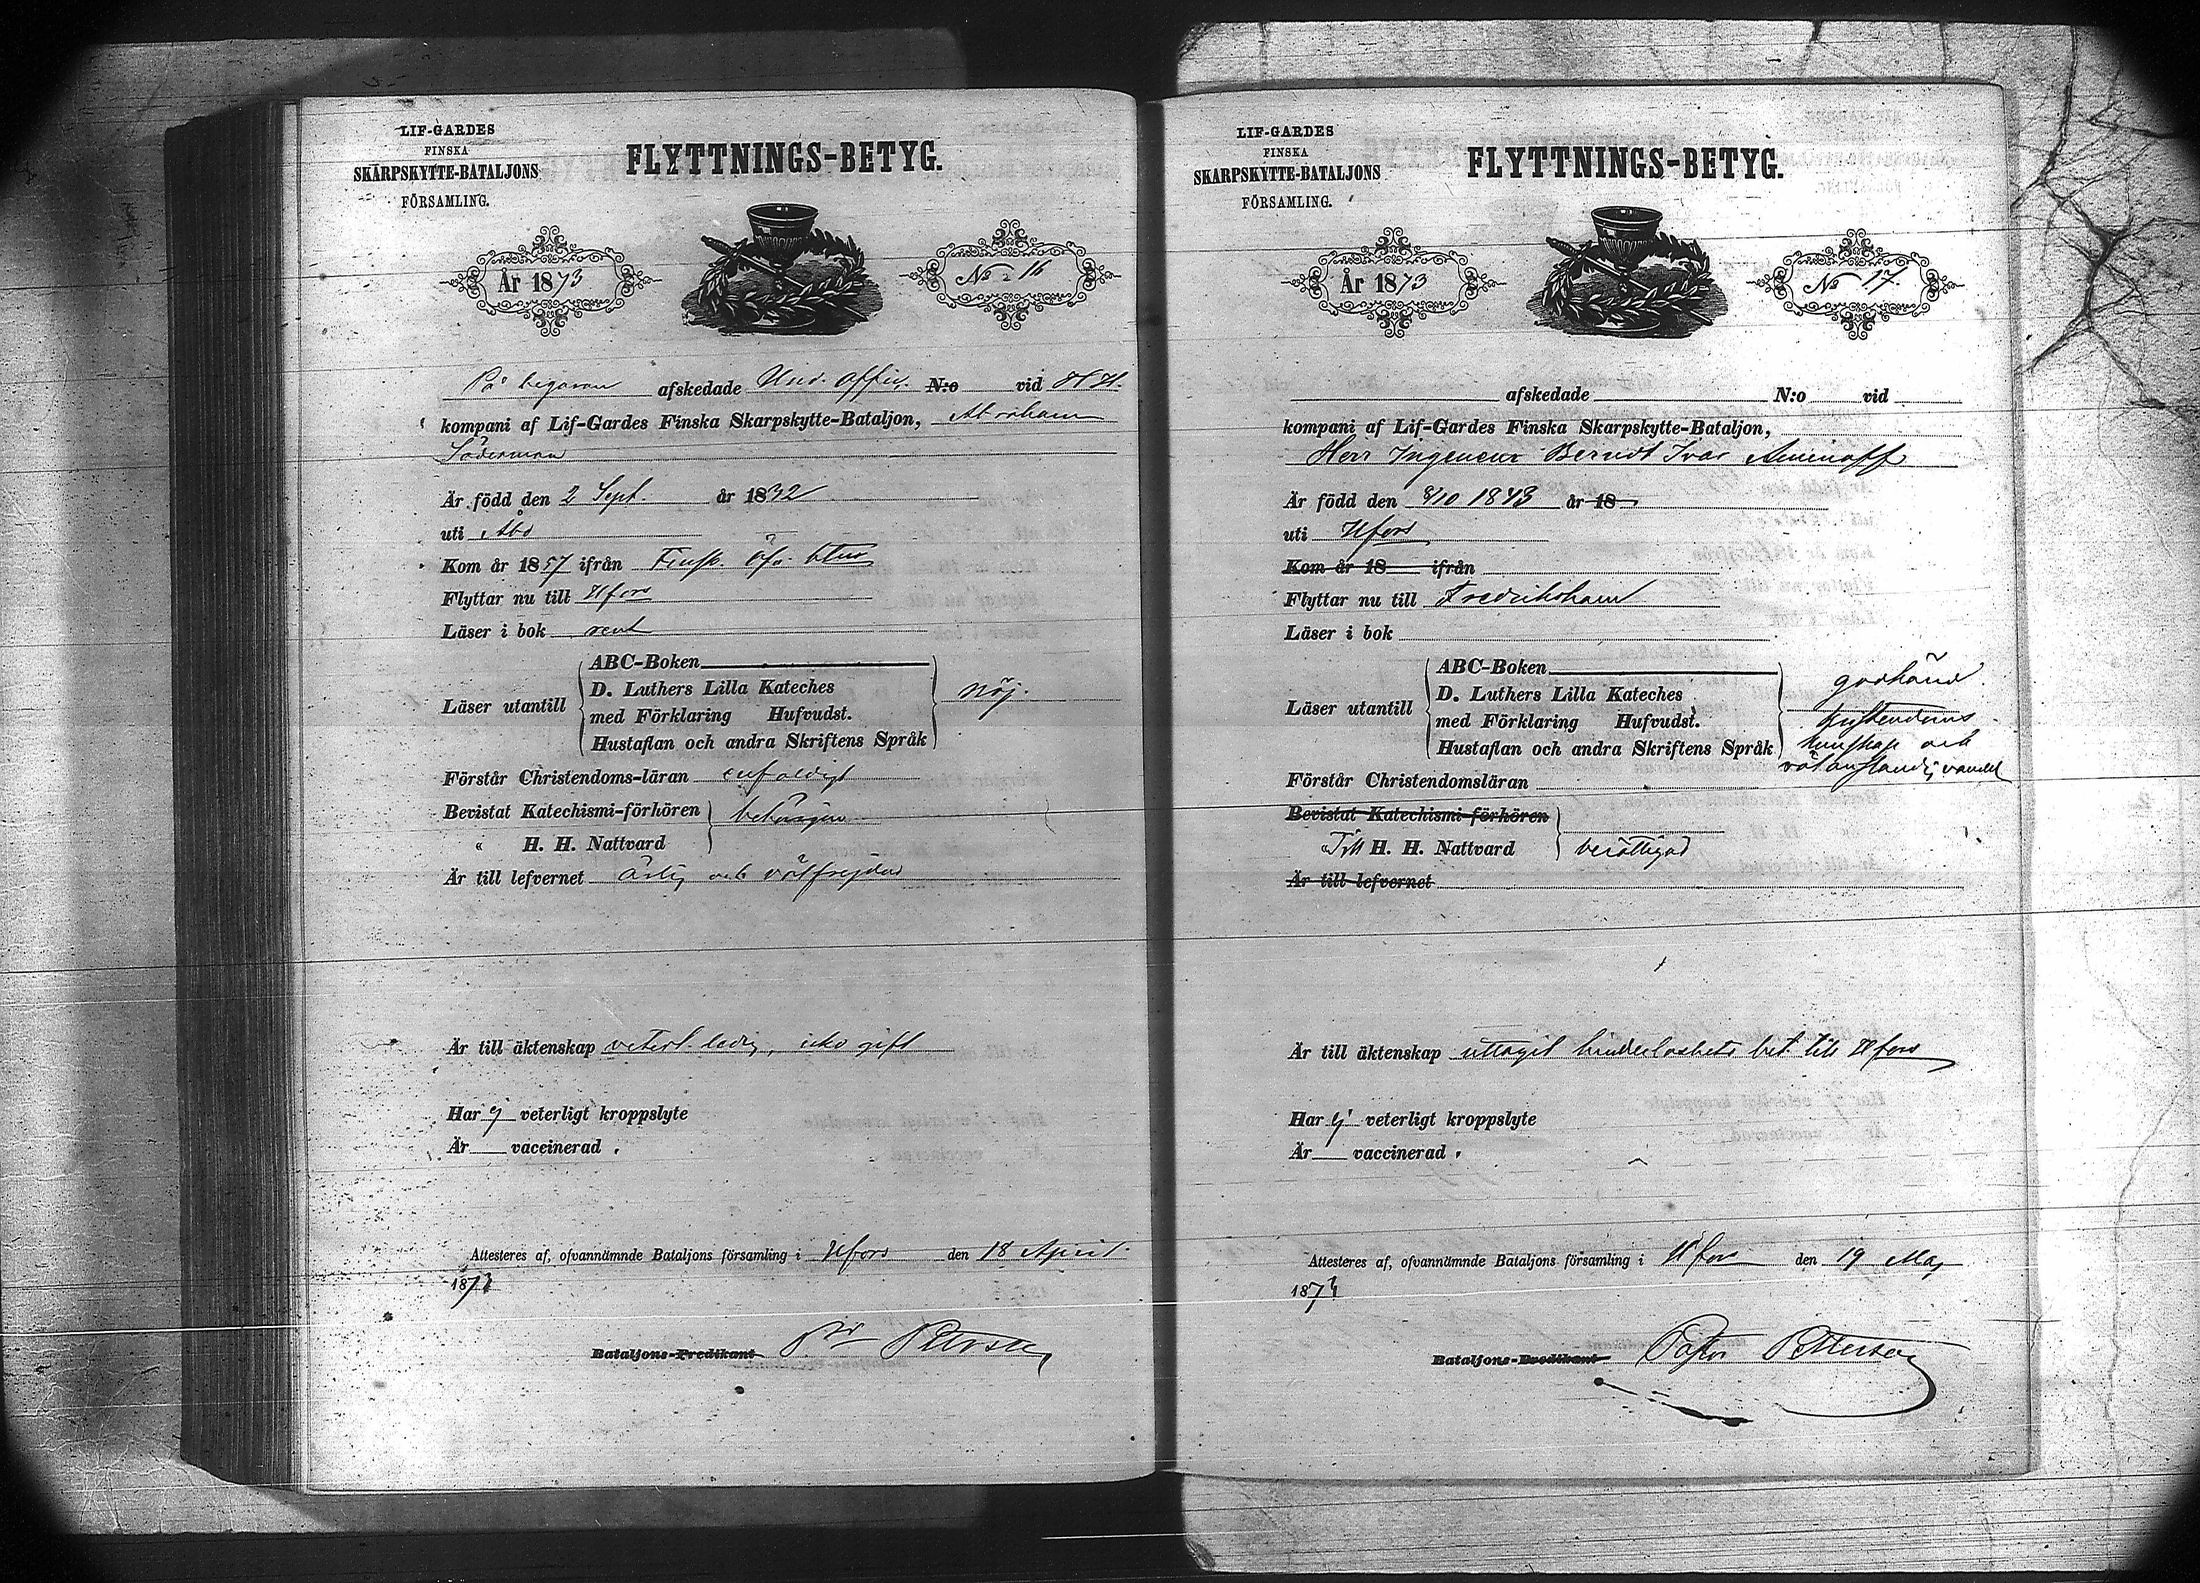 LIF-GARDES
FINSKA
SKARPSKYTTE-BATALJONS
FÖRSAMLING.
FLYTTNINGS-BETYG.
År 1873
No 16
På begäran afskedade Und. Offic. N:o vid
kompani af Lif-Gardes Finska Skarpskytte-Bataljon, Abraham
Söderman
Är född den 2 Sept. år 1832
uti Åbo
Kom år 1857 ifrån Finsk.
Flyttar nu till Hfors
Läser i bok rent
Läser utantill
ABC-Boken
D. Luthers Lilla Kateches
med Förklaring Hufvudst.
Hustaflan och andra Skriftens Språk
nöj.
Förstår Christendoms-läran enfaldigt
Bevistat Katechismi-förhören
" H. H. Nattvard
behörigen
Är till lefvernet ärlig och välfrejdad
Är till äktenskap veterl. ledig, icke gift
Har ej veterligt kroppslyte
Är vaccinerad.
Attesteres af, ofvannämnde Bataljons församling i Hfors den 18 April.
1873
Bataljons-Predikant
LIF-GARDES
FINSKA
SKARPSKYTTE-BATALJONS
FÖRSAMLING.
FLYTTNINGS-BETYG.
År 1873
No 17.
afskedade N:o vid
kompani af Lif-Gardes Finska Skarpskytte-Bataljon,
Herr Ingenieur Berndt Ivar Aminoff
Är född den 8/10 1843 år 18
uti Hfors
Kom år 18 ifrån
Flyttar nu till Fredrikshamn
Läser i bok
Läser utantill
ABC-Boken
D. Luthers Lilla Kateches
med Förklaring Hufvudst.
Hustaflan och andra Skriftens Språk
godkänd
kristendoms
kunskap och
välanständig vandel
Förstår Christendomsläran
Bevistat Katechismi-förhören
Till H. H. Nattvard
berättigad
Är till lefvernet
Är till äktenskap uttagit hinderlöshets bet. till Hfors
Har ej veterligt kroppslyte
Är vaccinerad.
Attesteres af, ofvannämnde Bataljons församling i Hfors den 19 Maj
1873
Bataljons-Predikant Pastor